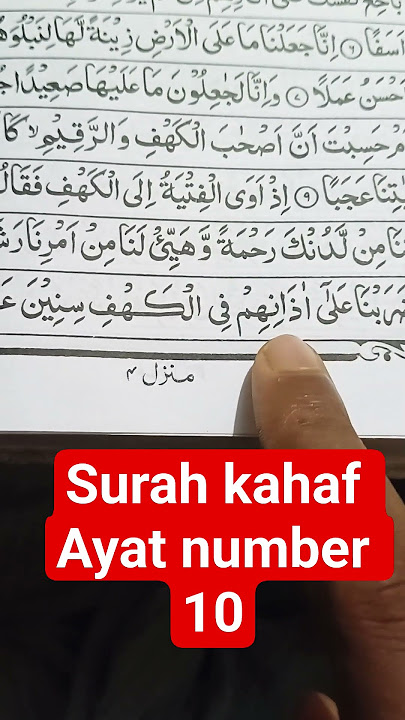 اَسَفًا ۝۶ اِنَّا جَعَلْنَا مَا عَلَى الْاَرْضِ زِيْنَةً لَّهَا لِنَبْلُوَهُ
اَحْسَنُ عَمَلًا ۝۷ وَاِنَّا لَجٰعِلُوْنَ مَا عَلَيْهَا صَعِيْدًا
حَسِبْتَ اَنَّ اَصْحٰبَ الْكَهْفِ وَالرَّقِيْمِ ۙ كَا
عَجَبًا ۝۹ اِذْ اَوَى الْفِتْيَةُ اِلَى الْكَهْفِ فَقَالُ
مِنْ لَّدُنْكَ رَحْمَةً وَّهَيِّئْ لَنَا مِنْ اَمْرِنَا رَشَ
ضَرَبْنَا عَلٰٓى اٰذَانِهِمْ فِى الْكَهْفِ سِنِيْنَ عَ
منزل ۴
Surah kahaf
Ayat number
10